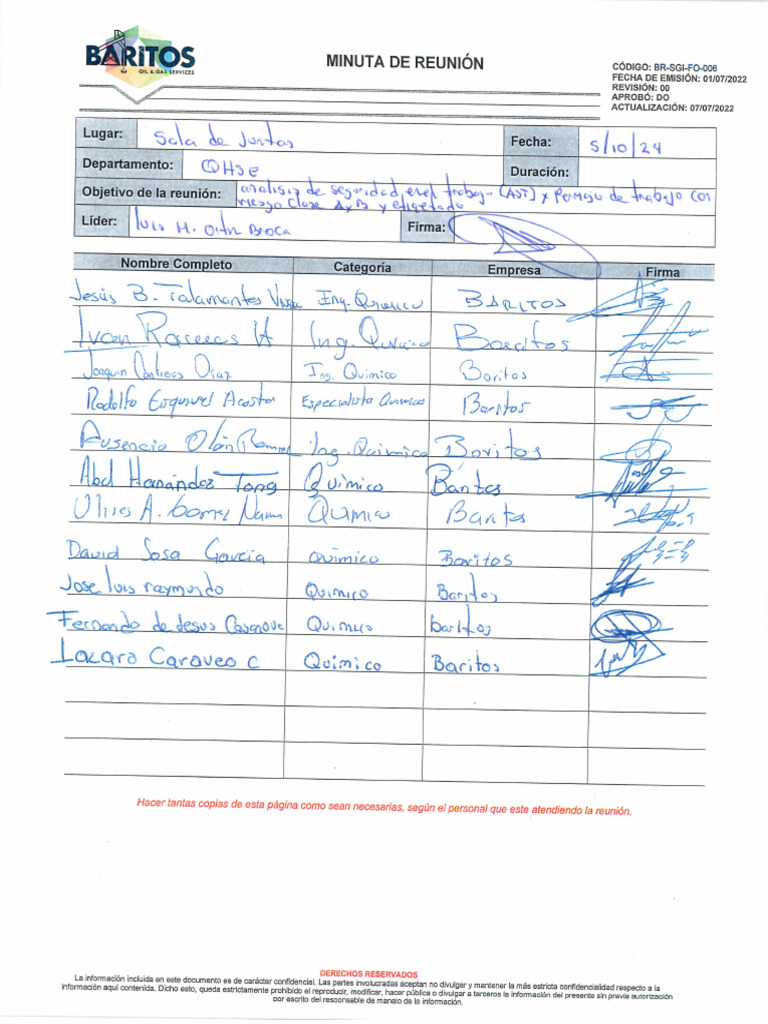 BARITOS
OIL & GAS SERVICES
MINUTA DE REUNIÓN
CÓDIGO: BR-SGI-FO-006
FECHA DE EMISIÓN: 01/07/2022
REVISIÓN: 00
APROBÓ: DO
ACTUALIZACIÓN: 07/07/2022
Lugar: Sala de Juntas Fecha: 5/10/24
Departamento: QHSE Duración:
Objetivo de la reunión: analisis de seguridad en el trabajo (AST) y permiso de trabajo con
riesgo Clase A y B y etiquetado
Líder: Luis H. Firma:
Nombre Completo Categoría Empresa Firma
Jesús B. Talamantes Ing. Quimico BARITOS
Ivan H Ing. Quimico Baritos
Joaquin Contreras Diaz Ing. Quimico Baritos
Rodolfo Esquivel Acosta Especialista Quimicos Baritos
Ausencio Olán Ing. Quimico Baritos
Abel Hernández Torres Químico Baritos
Ulises A. Gomez Quimico Baritos
David Sosa Garcia Quimico Baritos
Jose luis raymundo Quimico Baritos
Fernando de Jesus Casanova Quimico baritos
Lazaro Caraveo C Quimico Baritos
Hacer tantas copias de esta página como sean necesarias, según el personal que este atendiendo la reunión.
DERECHOS RESERVADOS
La información incluida en este documento es de carácter confidencial. Las partes involucradas aceptan no divulgar y mantener la más estricta confidencialidad respecto a la
información aquí contenida. Dicho esto, queda estrictamente prohibido el reproducir, modificar, hacer pública o divulgar a terceros la información del presente sin previa autorización
por escrito del responsable de manejo de la información.